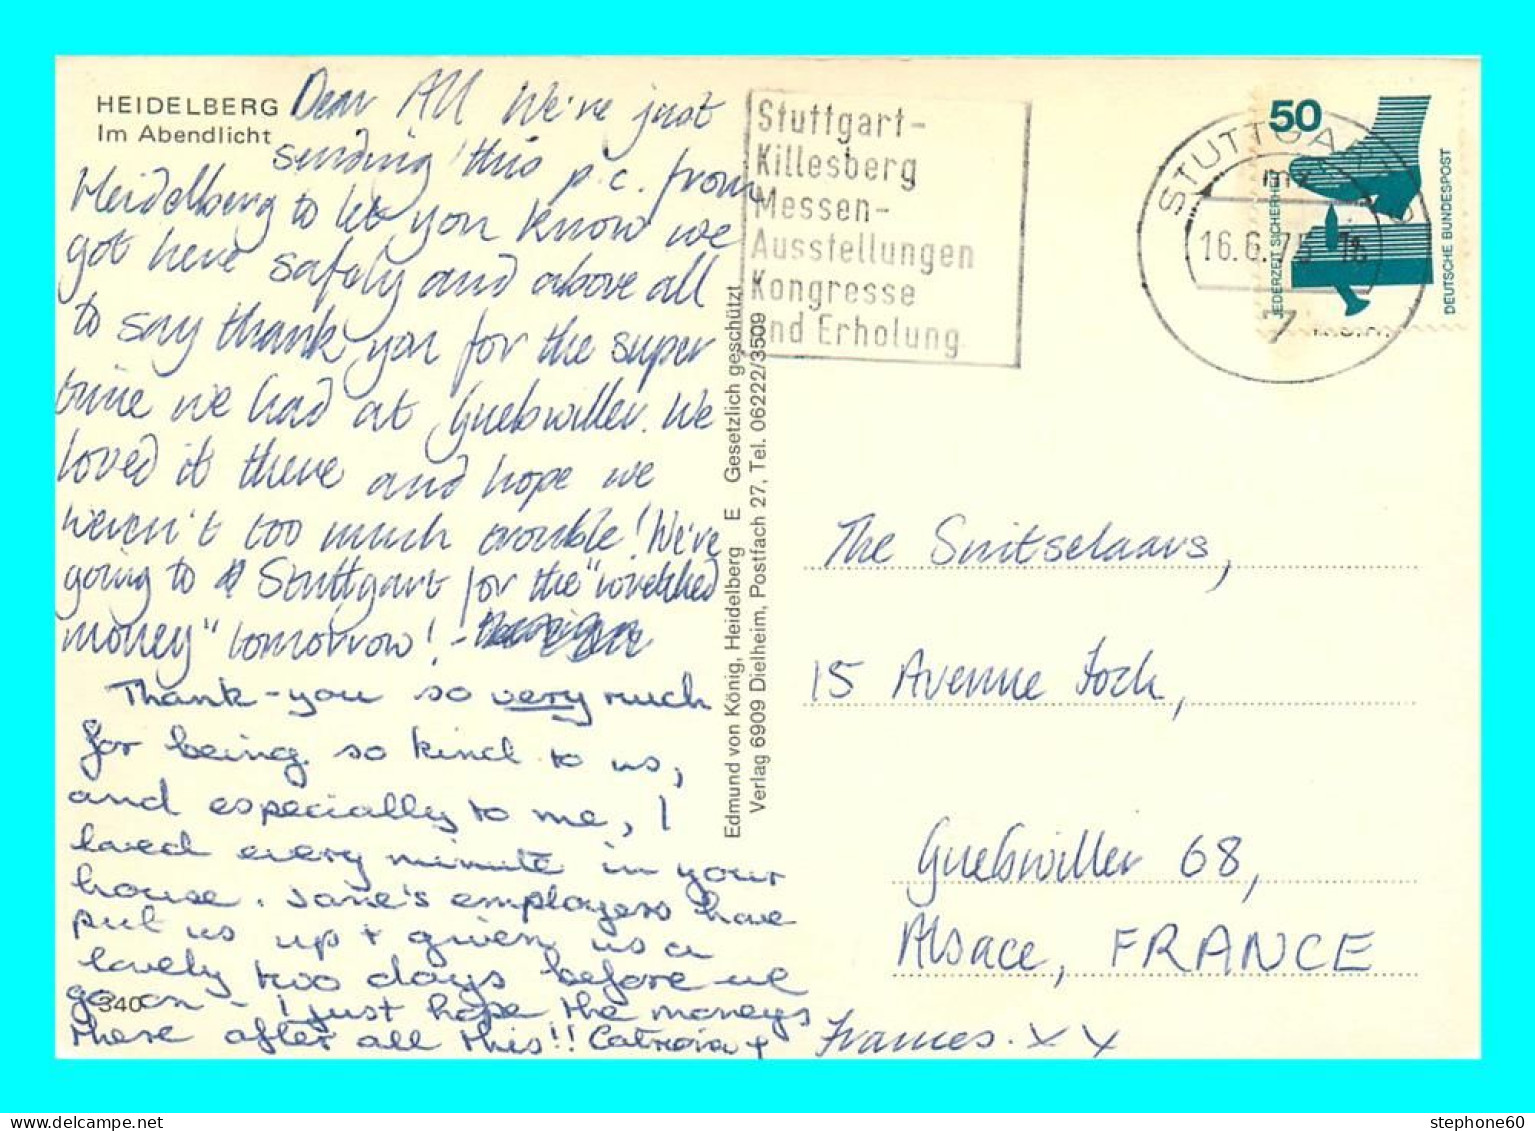 HEIDELBERG
Im Abendlicht
Dear All We're just
sending this p.c. from
Heidelberg to let you know we
got here safely and above all
to say thank you for the super
time we had at Guebwiller. We
loved it there and hope we
weren't too much trouble! We've
going to Stuttgart for the "wretched
money" tomorrow! -
Thank-you so very much
for being so kind to us,
and especially to me, I
loved every minute in your
house. Jane's employers have
put us up + given us a
lovely two days before we
go on - I just hope the money's
there after all this!! Catriona +
Frances. x x
340
Edmund von König, Heidelberg E Gesetzlich geschützt
Verlag 6909 Dielheim, Postfach 27, Tel. 06222/3509
Stuttgart-
Killesberg
Messen-
Ausstellungen
Kongresse
und Erholung
STUTTGART
16.6.75
7
50
JEDERZEIT SICHERHEIT
DEUTSCHE BUNDESPOST
The Smitselaars,
15 Avenue Foch,
Guebwiller 68,
Alsace, FRANCE
stephone60